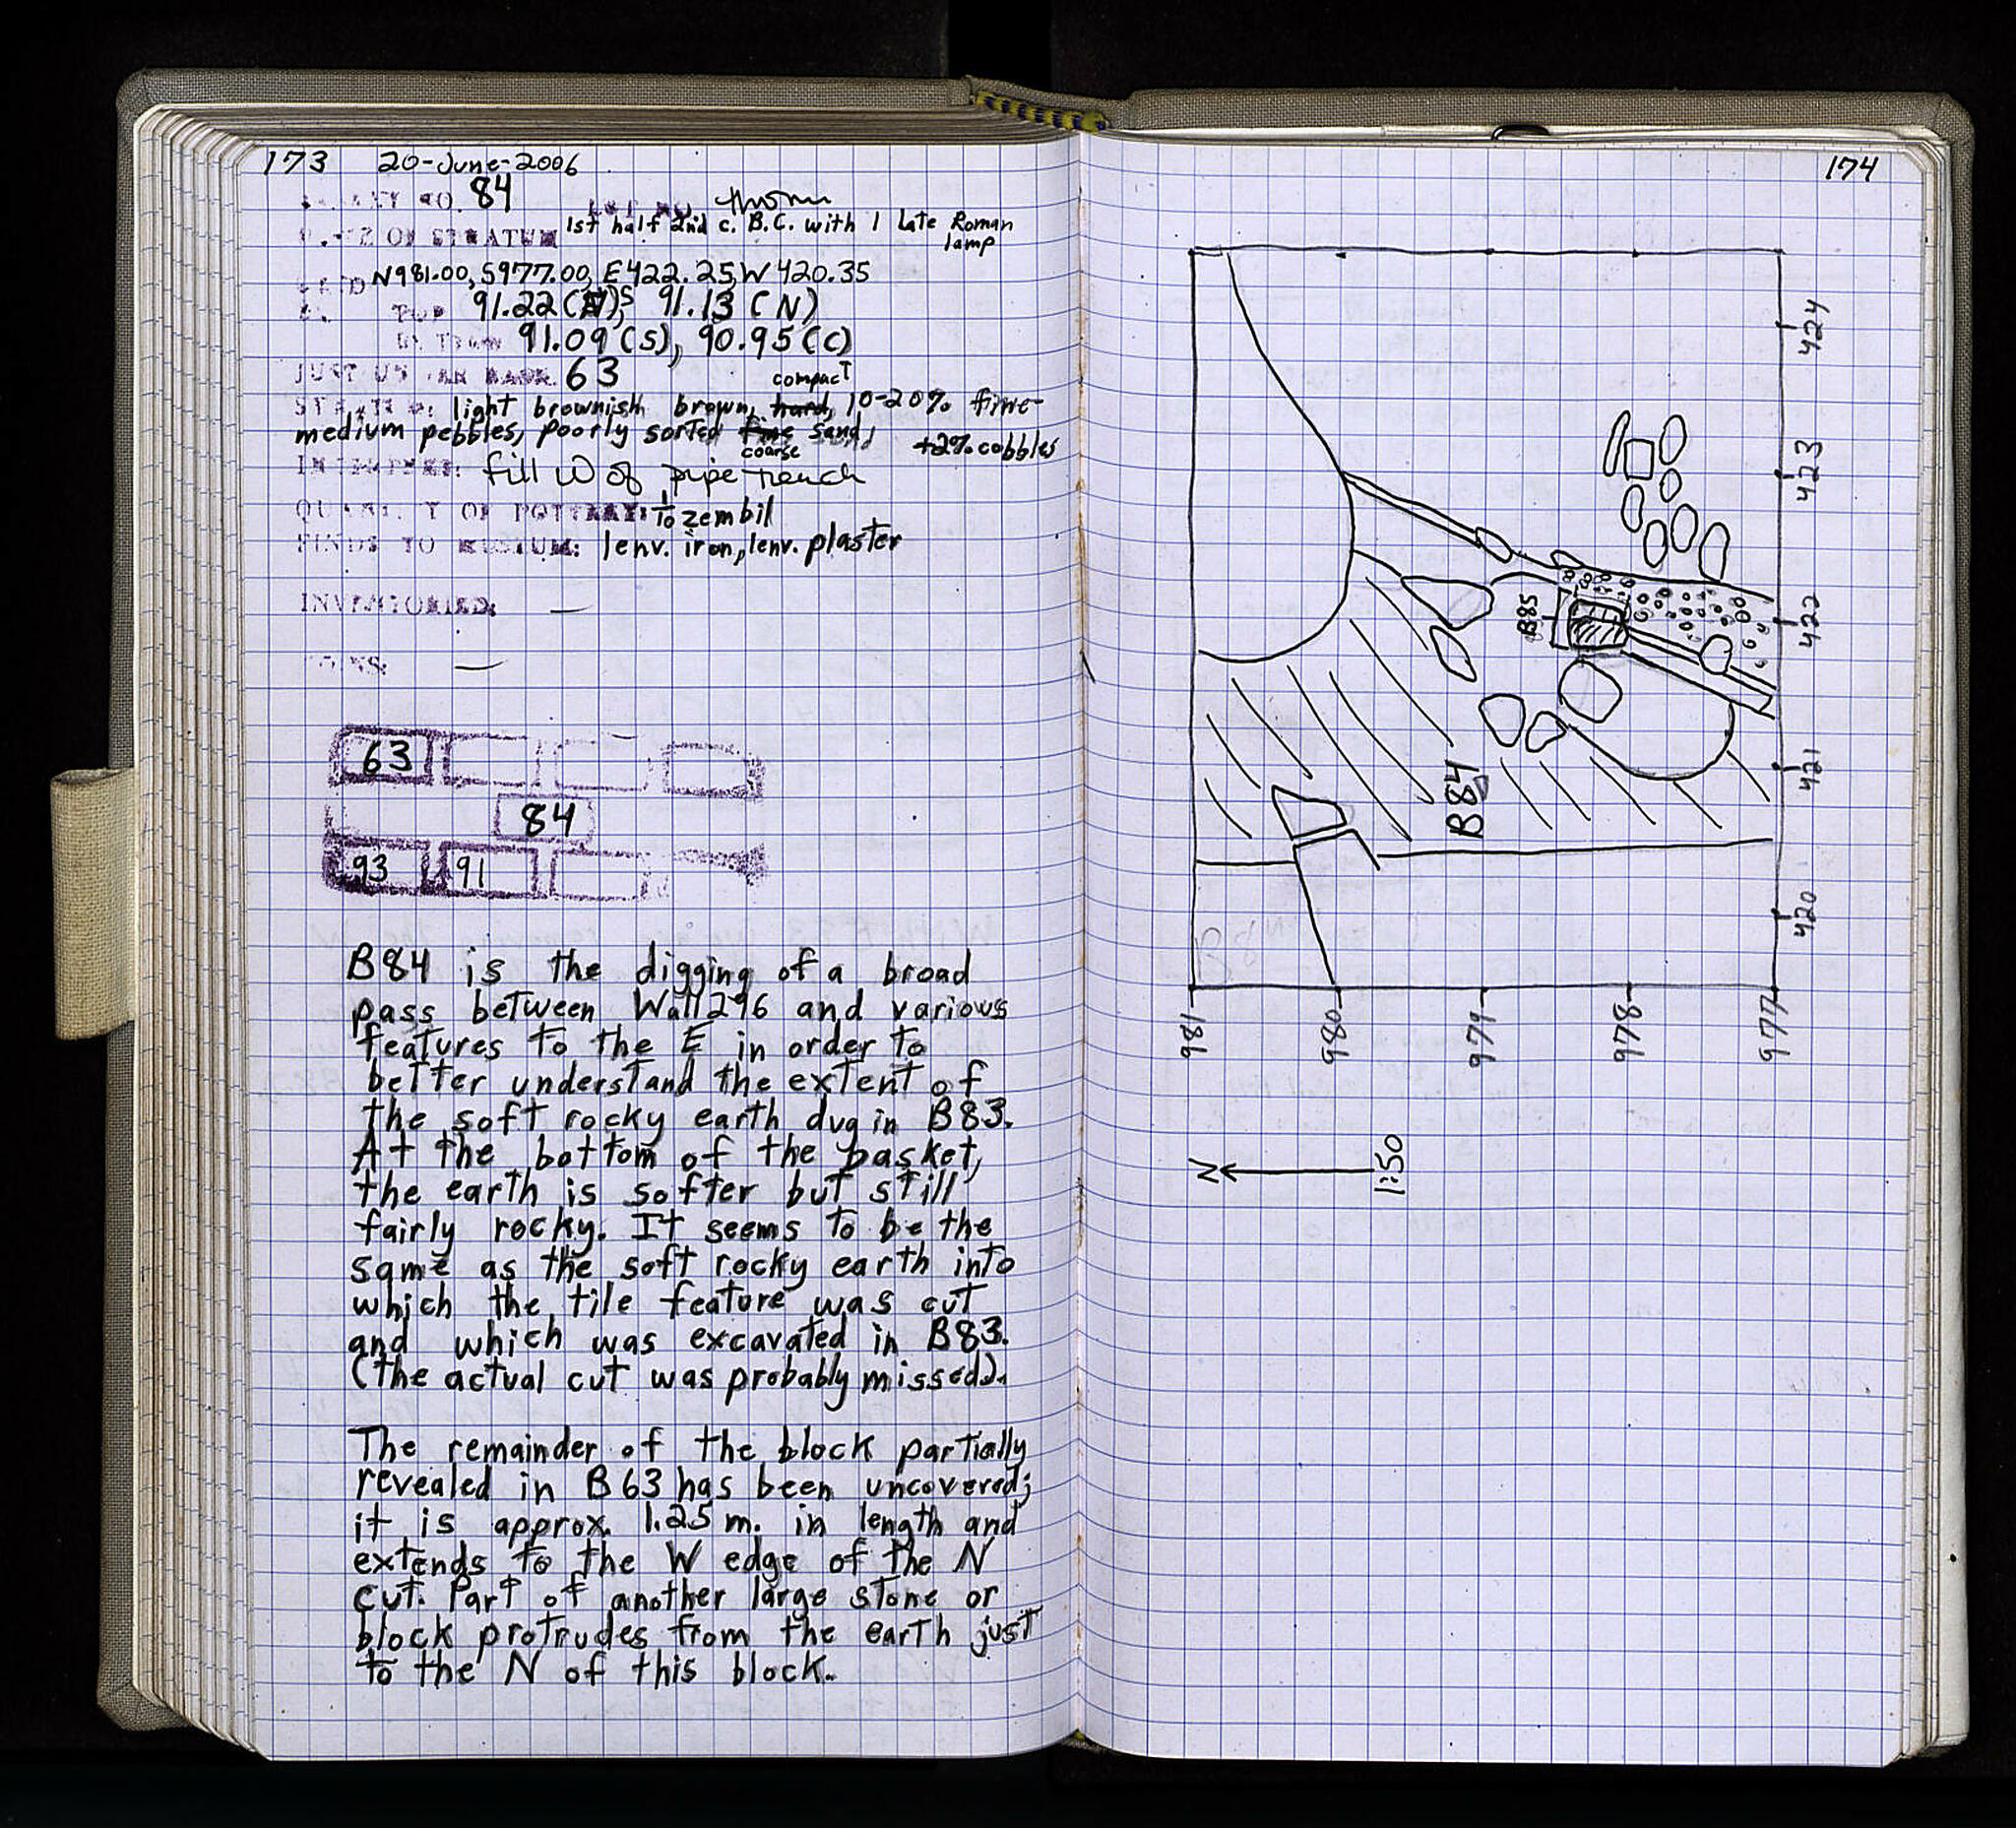 173 20-June-2006
BASKET NO. 84 LOT NO. thrown
DATE OF STRATUM 1st half 2nd c. B.C. with 1 Late Roman
lamp
GRID N981.00, S977.00, E422.25, W420.35
TOP 91.22 (S), 91.13 (N)
BOTTOM 91.09 (S), 90.95 (C)
JUST UNDER BASK. 63
compact
STRATUM: light brownish brown, hard, 10-20% fine-
medium pebbles, poorly sorted fine sand, +2% cobbles
coarse
INTERPRET: fill W of pipe trench
QUANTITY OF POTTERY: 1/10 zembil
FINDS TO MUSEUM: 1 env. iron, 1 env. plaster
INVENTORIED: —
COINS: —
63
84
93 91
B84 is the digging of a broad
pass between Wall 296 and various
features to the E in order to
better understand the extent of
the soft rocky earth dug in B83.
At the bottom of the basket,
the earth is softer but still
fairly rocky. It seems to be the
same as the soft rocky earth into
which the tile feature was cut
and which was excavated in B83.
(the actual cut was probably missed).
The remainder of the block partially
revealed in B63 has been uncovered;
it is approx. 1.25 m. in length and
extends to the W edge of the N
cut. Part of another large stone or
block protrudes from the earth just
to the N of this block.
174
424
423
422
421
420
B85
B84
981
980
979
978
977
N
1:50